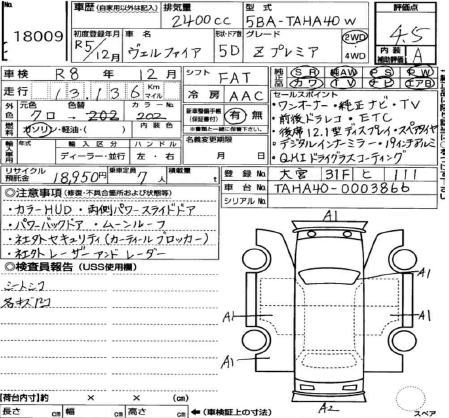 No.
18009
車歴 (自家用以外は記入)
排気量
2400cc
型式
5BA-TAHA40W
評価点
4.5
初度登録年月
R5/12月
車名
ヴェルファイア
形状・ドア数
5D
グレード
Z プレミア
2WD・4WD
内装補助評価
A
車検 R8年12月
シフト FAT
純正 SR 純正AW PS PW
カワ TV ナビ エアB
走行 13,136 Km マイル
冷房 AAC
外装色 元色 クロ 色替 202 カラーNo. 202
燃料 ガソリン・軽油・( ) 内装色
新車整備手帳(保証書付) 有・無
※書類と一緒に保管下さい。
輸入車 年式 年 輸入区分 ディーラー・並行 ハンドル 左・右
名義変更期限 月 日
セールスポイント
・ワンオーナー・純正ナビ・TV
・前後ドラレコ・ETC
・後席12.1型ディスプレイ・スペアタイヤ
・デジタルインナーミラー・19インチアルミ
・QMIドライグラスコーティング
リサイクル預託金 18,950円
乗車定員 7人
積載量 t
登録No. 大宮 31F と 111
車台No. TAHA40-0003866
シリアルNo.
◎注意事項 (修復・不具合箇所および状態等)
・カラーHUD・両側パワースライドドア
・パワーバックドア・ムーンルーフ
・社外セキュリティ(カーティールブロッカー)
・社外レーザーアンドレーダー
◎検査員報告 (USS使用欄)
シートシワ
A1
A1
A1
A1
A1
A2
【荷台内寸】約 × × (cm)
長さ cm 幅 cm 高さ cm ←(車検証上の寸法)
スペア